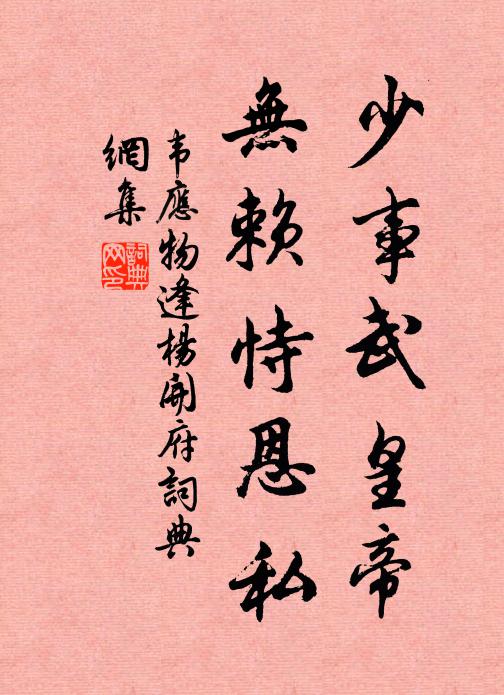 少事武皇帝
無賴恃恩私
韦應物逢楊開府詞典
網集
詞典
网印